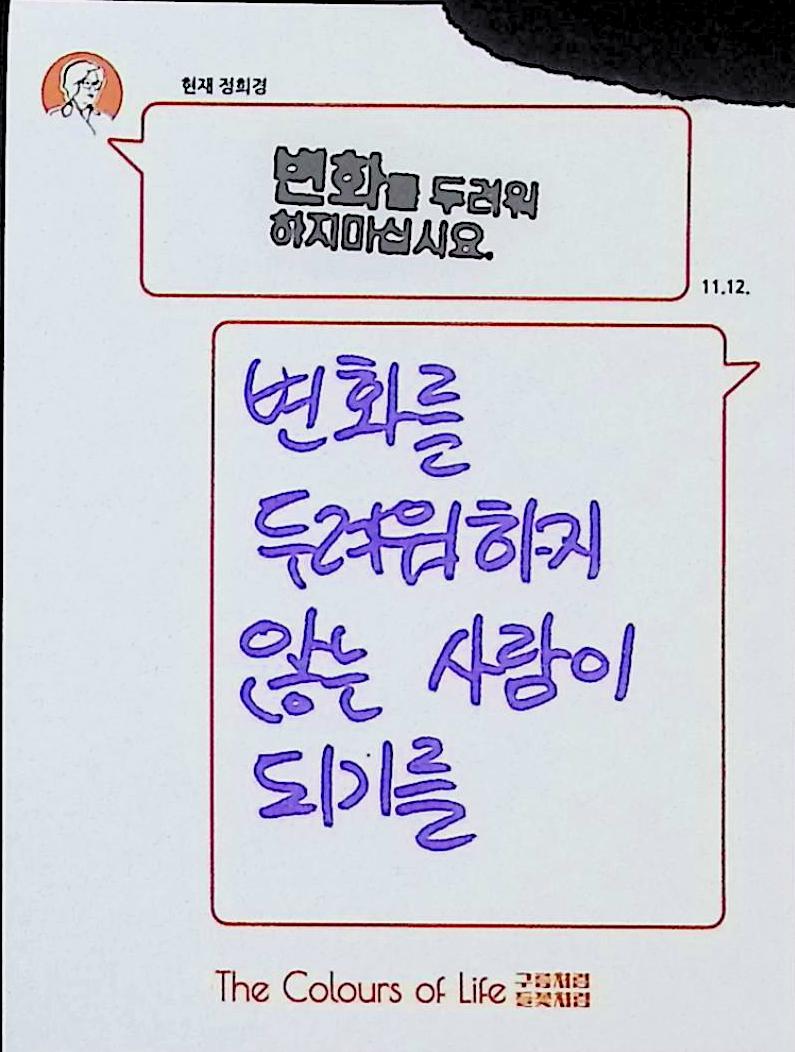 현재 정희경
변화를 두려워
하지마십시요.
11.12.
변화를
두려워하지
않는 사람이
되기를
The Colours of Life 구름처럼
들꽃처럼